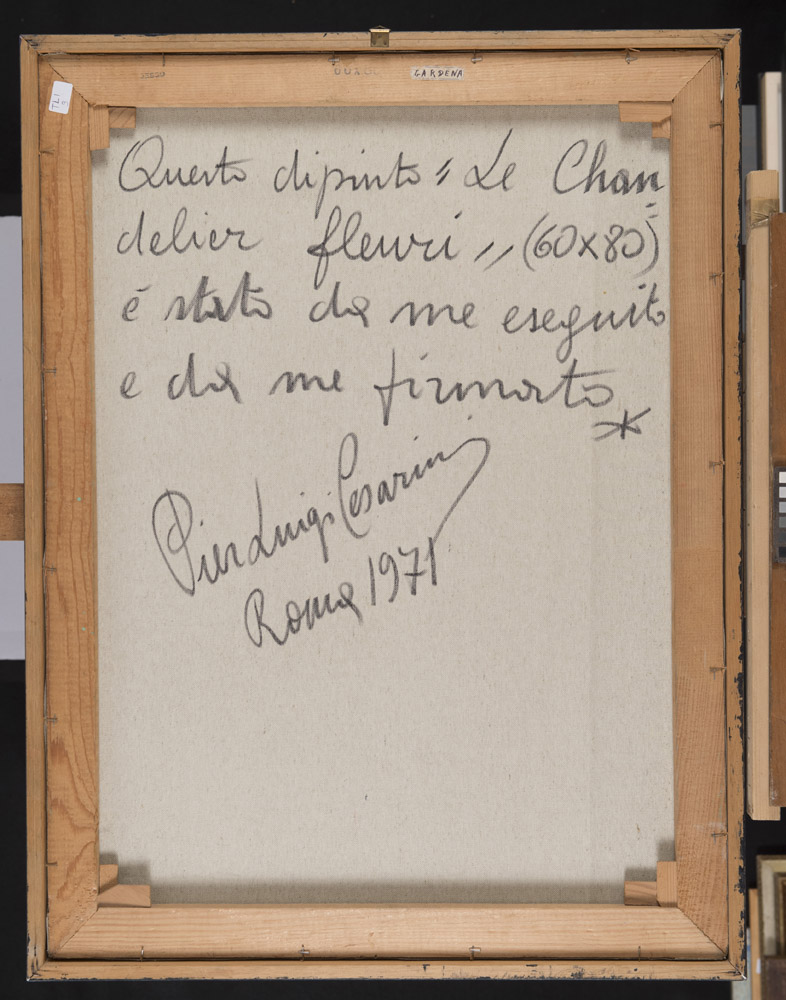 GARDENA
TLI
Questo dipinto "Le Chan
delier fleuri" (60x80)
é stato da me eseguito
e da me firmato
PierLuigi Cesarini
Roma 1971